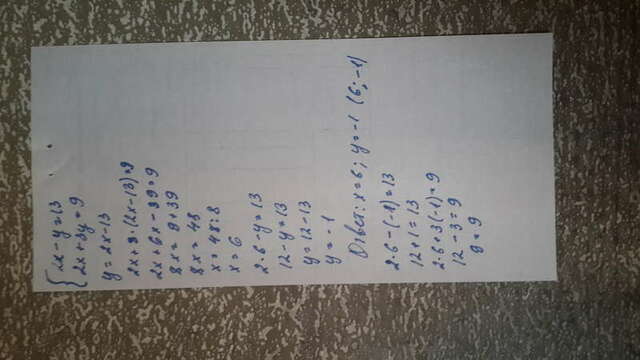 2x - y = 13
2x + 3y = 9
y = 2x - 13
2x + 3 · (2x - 13) = 9
2x + 6x - 39 = 9
8x = 9 + 39
8x = 48
x = 48 : 8
x = 6
2 · 6 - y = 13
12 - y = 13
y = 12 - 13
y = -1
Ответ: x = 6; y = -1 (6; -1)
2 · 6 - (-1) = 13
12 + 1 = 13
2 · 6 + 3(-1) = 9
12 - 3 = 9
9 = 9